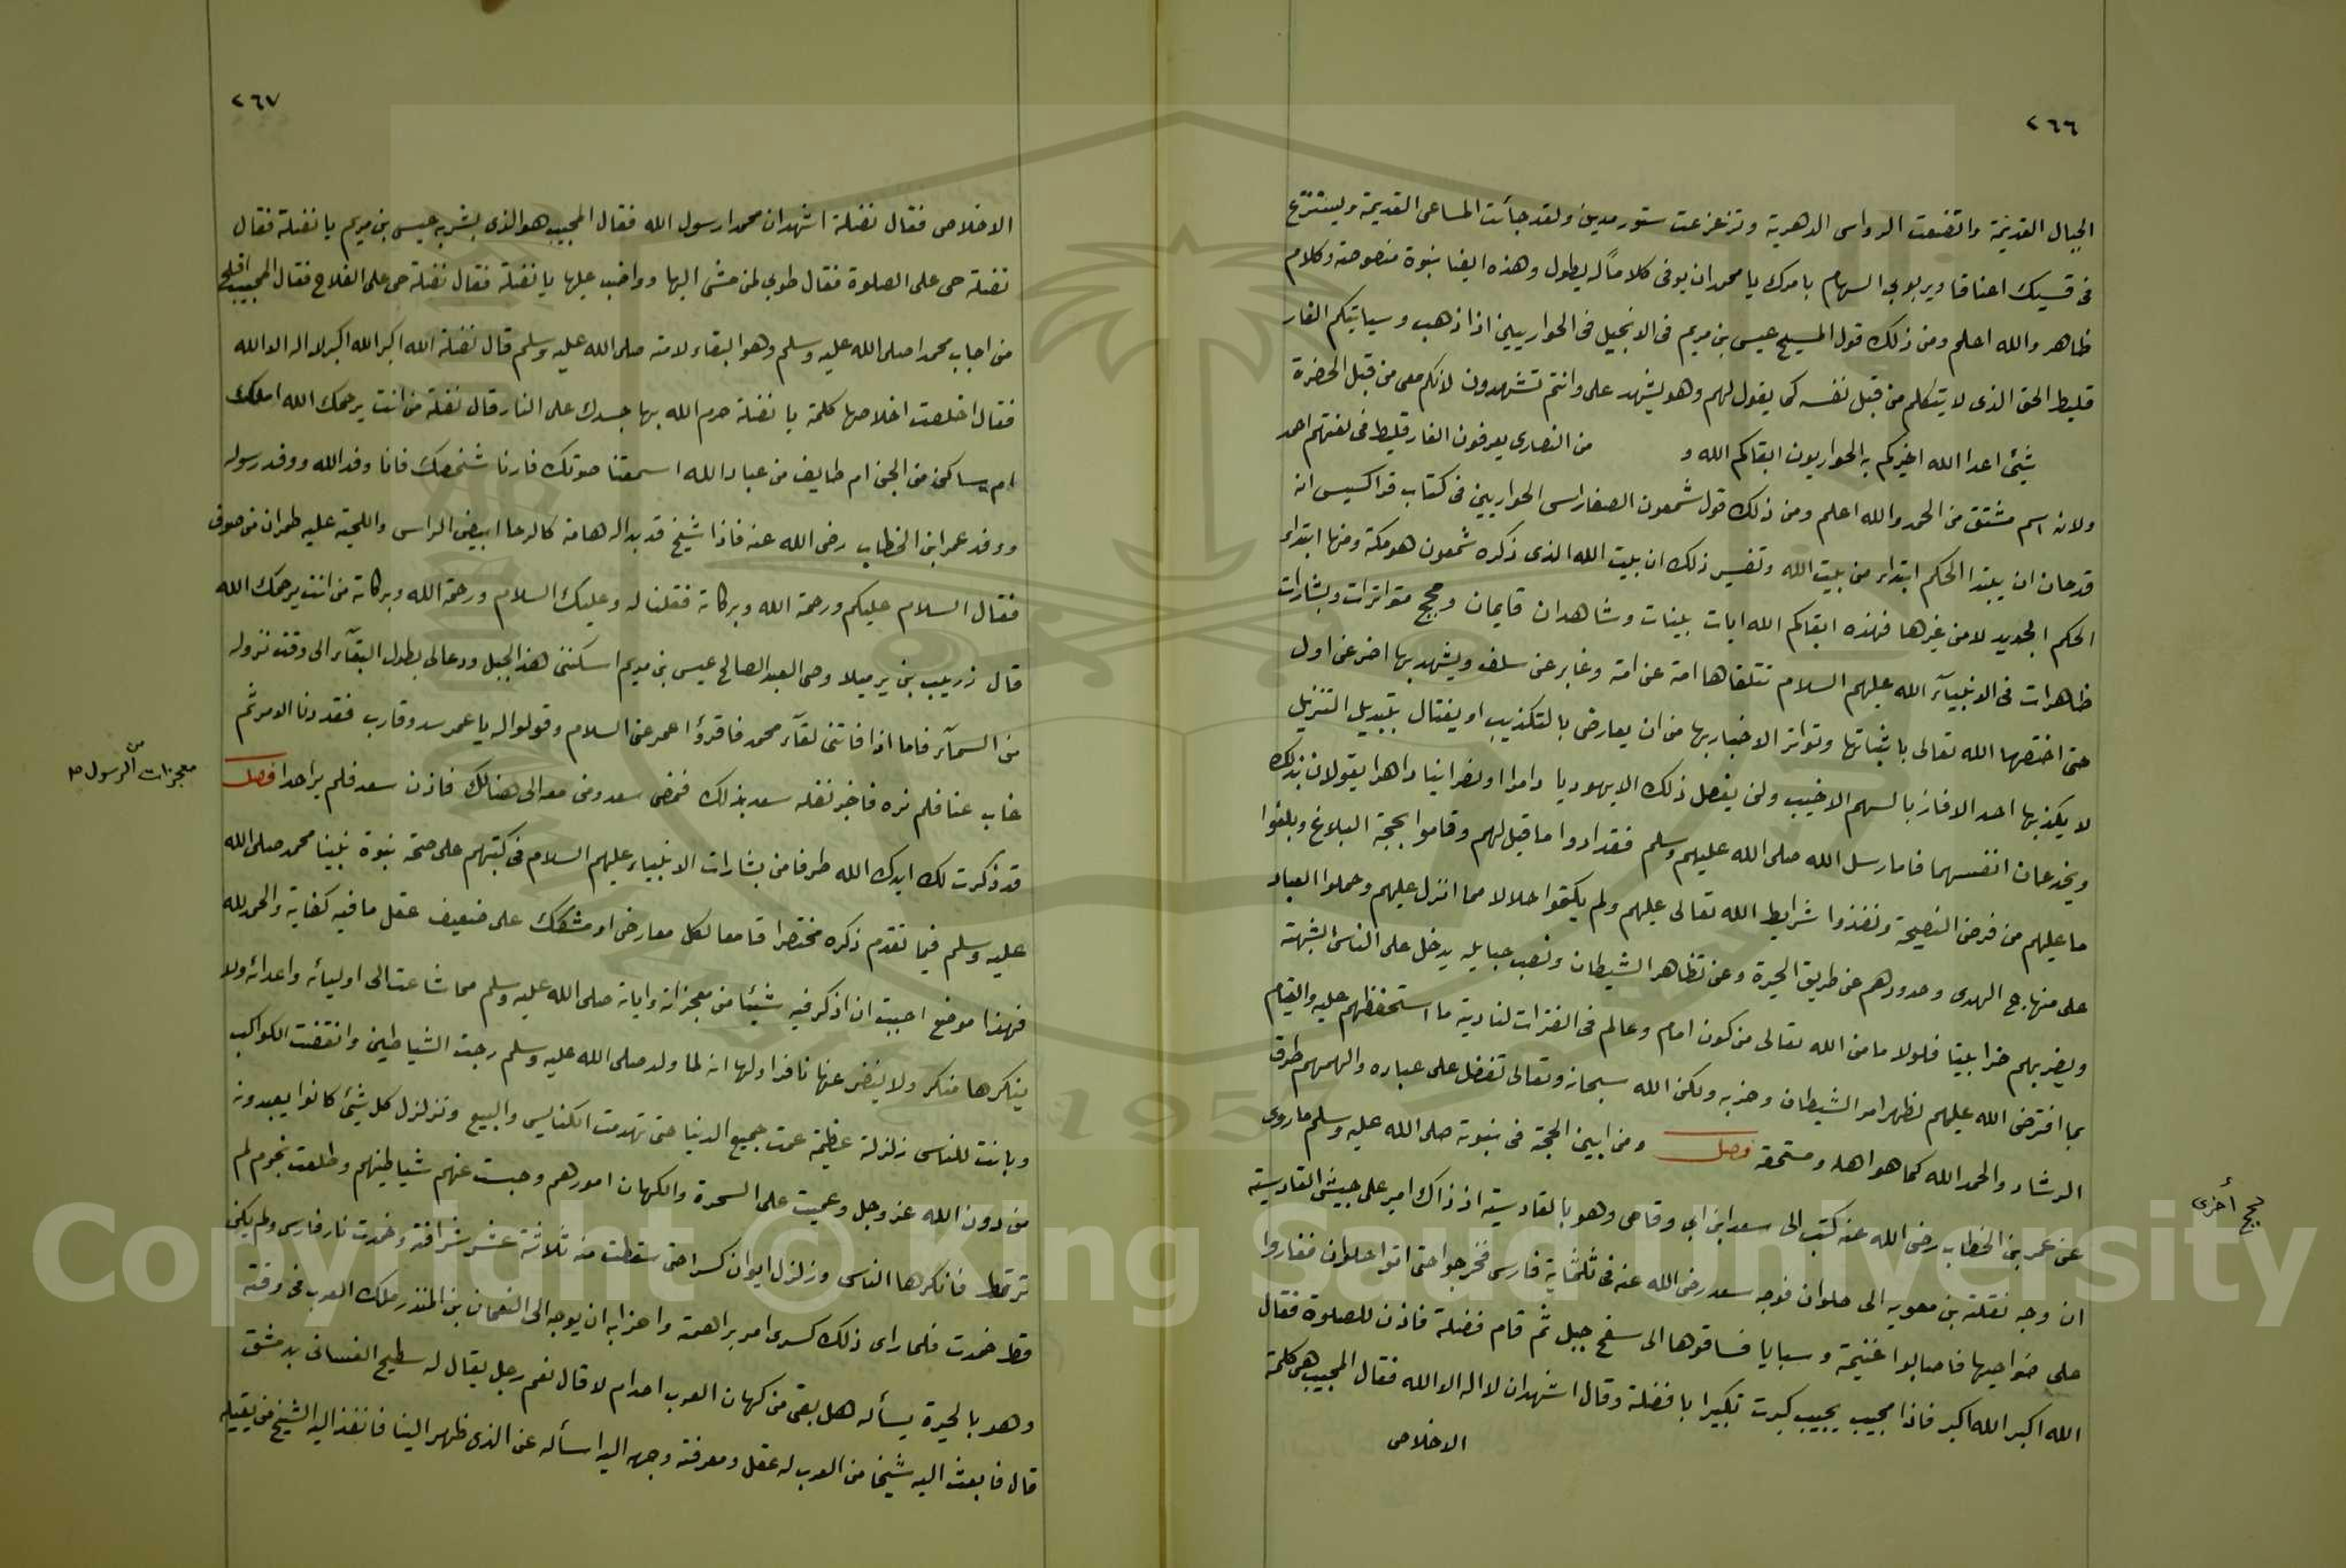 ٢٦٦
الجبال القديمة واتضعت الرواسى الدهرية وتزعزعت ستور مدين ولقد جأئت المساعى القديمة وليستنزع
فى قسيك اعناقا ويربوبى السهام بامرك يا محمد ان يوفى كلاماً له يطول وهذه ايضا نبوة منصوصة وكلام
ظاهر والله اعلم ومن ذلك قول المسيح عيسى بن مريم فى الانجيل فى الحواريين اذا ذهب وسياتيكم الفار
قليط الحق الذى لا يتكلم من قبل نفسه كما يقول لهم وهو يشهد على وانتم تشهدون لانكم معى من قبل الحضرة
شيئ اعدا الله اخبركم به الحواريون ابقاكم الله و من النصارى يعرفون الفارقليط فى لغتهم احمد
ولانه اسم مشتق من الحمد والله اعلم ومن ذلك قول شمعون الصفا راس الحواريين فى كتاب قراكسيس انه
قد حان ان يبتدا الحكم ابتداء من بيت الله وتفسير ذلك ان بيت الله الذى ذكره شمعون هو مكة ومنها ابتداء
الحكم الجديد لا من غيرها فهذه ابقاكم الله ايات بينات وشاهدان قايمان وحجج متواترات وبشارات
ظاهرات فى الانبيآء الله عليهم السلام تتلقاها امة عن امة وغابر عن سلف ويشهد بها اخر عن اول
حتى اختصها الله تعالى باثباتها وتواتر الاخبار بها من ان يعارض بالتكذيب او يغتال بتبديل التنزيل
لا يكذبها احد الا فاز بالسهم الاخيب ولن يفعل ذلك الا يهوديا دامرا او نصرانيا داهرا يقولان بذلك
ويخدعان انفسهما فاما رسل الله صلى الله عليهم وسلم فقد ادوا ما قيل لهم وقاموا بحجة البلاغ وبلغوا
ما عليهم من فرض النصيحة ونفذوا شرايط الله تعالى عليهم ولم يكتموا حلالا مما انزل عليهم وحملوا العباد
على منهاج الهدى وحدودهم عن طريق الحيرة وعن تظاهر الشيطان ونصب حبايله يدخل على الناس الشبهة
ويضربهم ضرا بينا فلولا ما من الله تعالى من كون امام وعالم فى الفترات لنادية ما استحفظهم عليه والقيام
بما افترض الله عليهم لظهر امر الشيطان وحزبه ولكن الله سبحانه وتعالى تفضل على عباده والهمهم طرق
الرشاد والحمد الله كما هو اهله ومستحقه فصل ومن ابين الحجة فى نبوته صلى الله عليه وسلم ما روى
حجج أخرى
عن عمر بن الخطاب رضى الله عنه كتب الى سعد ابن ابي وقاص وهو بالقادسية اذ ذاك امير على جيش القادسية
ان وجه نقلة بن معويه الى حلوان فوجه سعد رضى الله عنه فى ثلثماية فارس فخرجوا حتى اتوا حلوان فغاروا
على ضواحيها فاصابوا غنيمة وسبايا فساقوها الى سفح جبل ثم قام فضلة فاذن للصلوة فقال
الله اكبر الله اكبر فاذا مجيب يجيب كبرت تكبيرا يا فضلة وقال اشهد ان لا اله الا الله فقال المجيب هى كلمة
الاخلاص
٢٦٧
الاخلاص فقال نضلة اشهد ان محمدا رسول الله فقال المجيب هو الذى بشر به عيسى بن مريم يا نضلة فقال
نضلة حى على الصلوة فقال طوبى لمن مشى اليها وواضب عليها يا نضلة فقال نضلة حى على الفلاح فقال المجيب افلح
من اجاب محمدا صلى الله عليه وسلم وهو البقاء لامته صلى الله عليه وسلم قال نضلة الله اكبر الله اكبر لا اله الا الله
فقال اخلصت اخلاصها كلمة يا نضلة حرم الله بها جسدك على النار قال نضلة من انت يرحمك الله املك
ام ساكن من الجن ام طايف من عباد الله اسمعتنا صوتك فارنا شخصك فانا وفد الله ووفد رسوله
ووفد عمر ابن الخطاب رضى الله عنه فاذا شيخ قد بدا له هامة كالرحا ابيض الراس واللحية عليه طمران من صوف
فقال السلام عليكم ورحمة الله وبركاته فقلنا له وعليك السلام ورحمة الله وبركاته من انت يرحمك الله
قال زريب بن يرميلا وصى العبد الصالح عيسى بن مريم اسكننى هذا الجبل ودعا لى بطول البقآء الى وقت نزوله
من السمآء فاما اذا فاتنى لقآء محمد فاقرؤا عمر عنى السلام وقولوا له يا عمر سدد وقارب فقد دنا الامر ثم
غاب عنا فلم نره فاخبر نفله سعد بذلك فمضى سعد ومن معه الى هنالك فاذن سعد فلم ير احدا فصل
من معجزات الرسول ص
قد ذكرت لك ايدك الله طرفا من بشارات الانبياء عليهم السلام فى كتبهم على صحة نبوة نبينا محمد صلى الله
عليه وسلم فيما تقدم ذكره مختصرا قامعا لكل معارض او مشكك على ضعيف عقل ما فيه كفاية والحمد لله
فهذا موضع احببت ان اذكر فيه شيئا من معجزاته واياته صلى الله عليه وسلم مما شاعت الى اوليائه واعدائه ولا
ينكرها منكر ولا ينضر عنها نافذ اولها انه لما ولد صلى الله عليه وسلم رجت الشياطين وانقضت الكواكب
وبانت للناس زلزلة عظيمة عمت جميع الدنيا حتى تهدمت الكنايس والبيع وتزلزل كل شيئ كانوا يعبدونه
من دون الله عز وجل وعميت على السحرة والكهان امورهم وحبست عنهم شياطينهم وطلعت نجوم لم
تر قط فانكرها الناس وزلزل ايوان كسرا حتى سقطت منه ثلاثة عشر شرافة وخمدت نار فارس ولم يكن
قط خمدت فلما راى ذلك كسرى امر براهمة واحزابه ان يوجه الى النعمان بن المنذر ملك العرب فى وقته
وهو بالحيرة يسأله هل بقى من كهان العرب احد ام لا قال نعم رجل يقال له سطيح الغسانى بدمشق
قال فابعث اليه شيخا من العرب له عقل ومعرفة وجهه اليه اسأله عن الذى ظهر الينا فانفذ اليه الشيخ من بقيله
Copyright © King Saud University
195